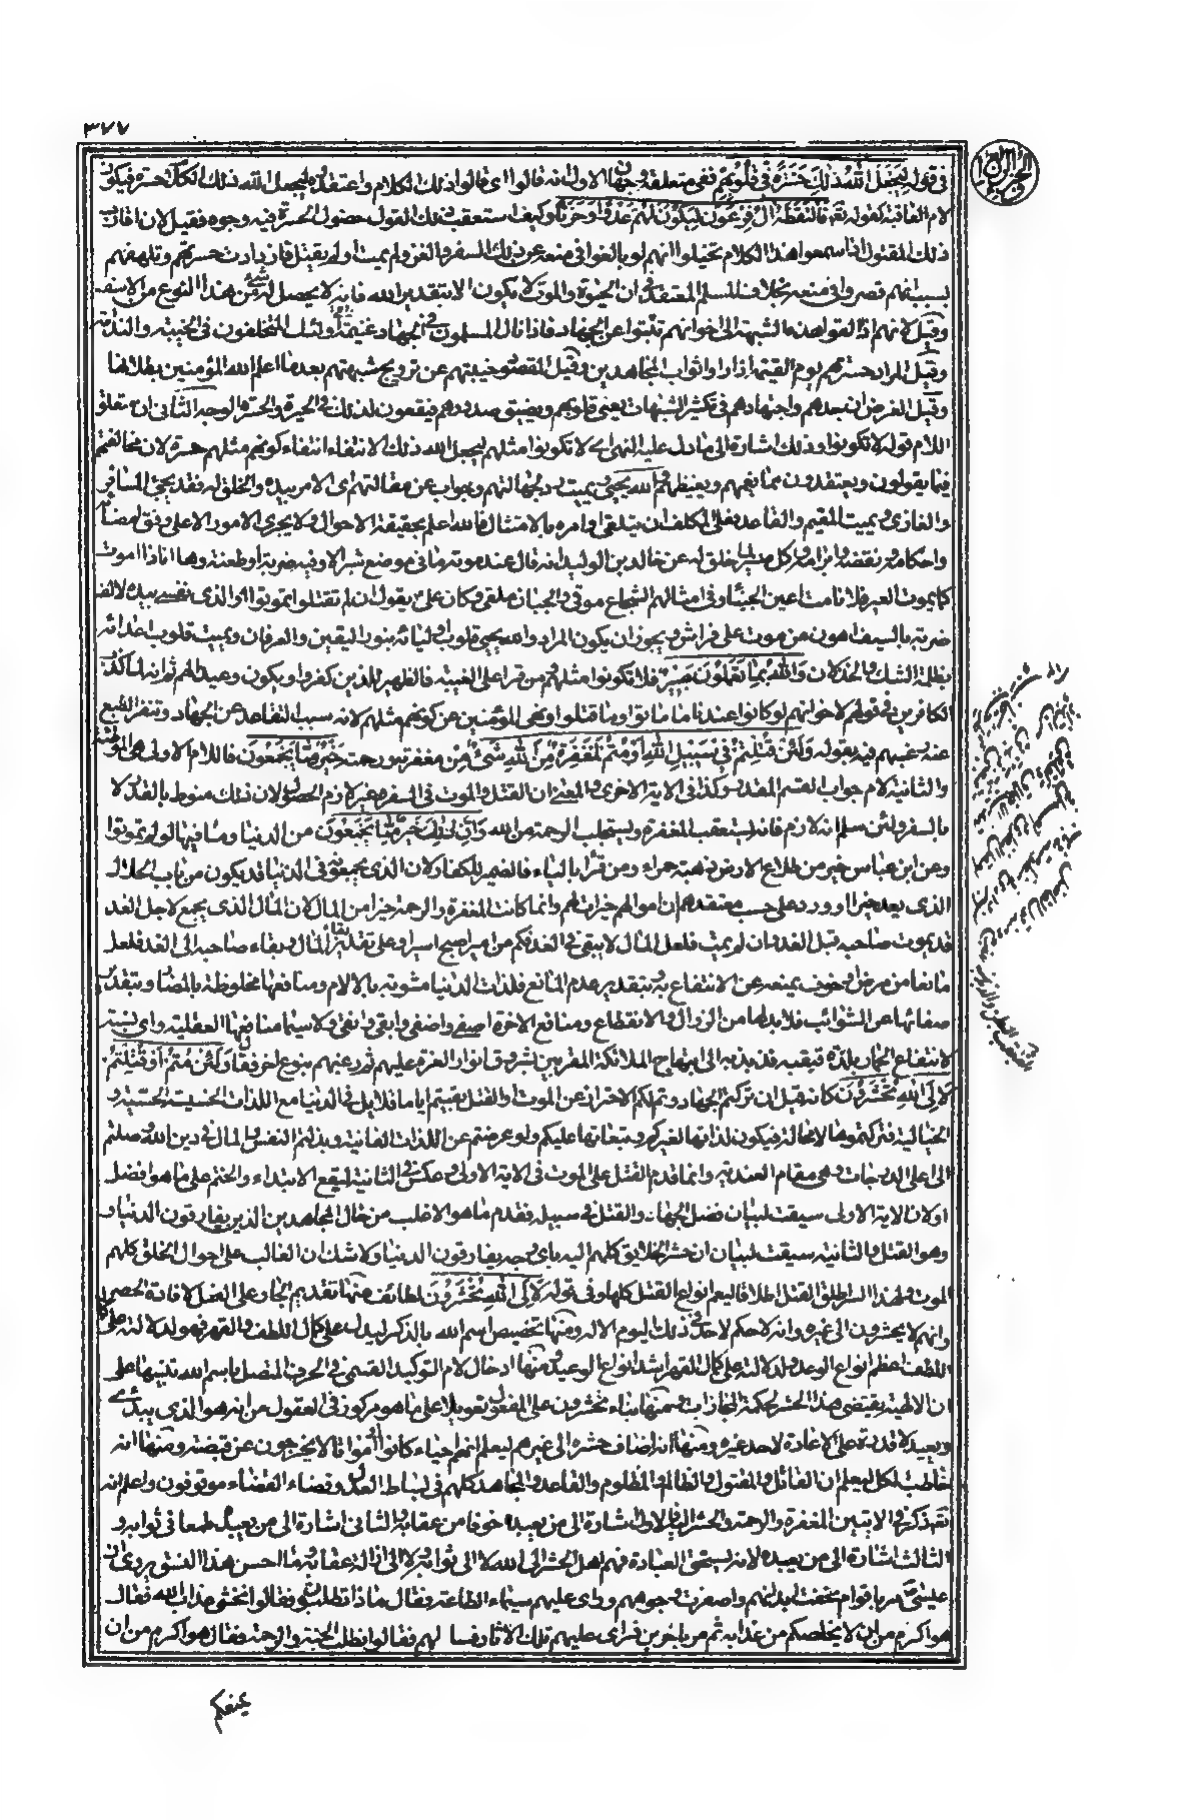 ٣٧٧
في قوله ليجعل الله ذلك حسرة في قلوبهم ففي متعلقه وجهان الاول انه قالوا اي قالوا ذلك الكلام واعتقدوه ليجعل الله ذلك الكلام حسرة فيكون
لام العاقبة كقوله تعالى فالتقطه آل فرعون ليكون لهم عدوا وحزنا وكيف استعقب ذلك القول حصول الحسرة فيه وجوه فقيل لان اقارب
ذلك المقتول اذا سمعوا هذا الكلام تخيلوا انهم لو بالغوا في منعه عن ذلك السفر والغزو لم يمت او لم يقتل فازدادت حسرتهم وتلهفهم
بسبب انهم قصروا في منعه بخلاف المسلم المعتقد في ان الحيوة والموت لا يكون الا بتقدير الله فانه لا يحصل له شيء من هذا النوع من الاسف
وقيل لانهم اذا القوا هذه الشبهة الى اخوانهم تثبطوا عن الجهاد فاذا نال المسلمون في الجهاد غنيمة اولئك المتخلفون في الخيبة والندامة
وقيل المراد حسرتهم يوم القيمة اذا راوا ثواب المجاهدين وقيل المقصود خيبتهم عن ترويج شبهتهم بعد ما اعلم الله المؤمنين بطلانها
وقيل الغرض ان جدهم واجتهادهم في تكثير الشبهات يعمي قلوبهم ويضيق صدورهم فيقعون لذلك في الحيرة والحسرة الوجه الثاني ان متعلق
اللام قوله لا تكونوا وذلك اشارة الى ما دل عليه النهي اي لا تكونوا مثلهم ليجعل الله ذلك الانتفاء انتفاء كونكم مثلهم حسرة لان مخالفتهم
فيما يقولون ويعتقدون مما يغمهم ويغيظهم والله يحيي ويميت رد لجهالتهم وجواب عن مقالتهم اي الامر بيده والخلق له فقد يحيي المسافر
والغازي ويميت المقيم والقاعد وعلى المكلف ان يتلقى اوامره بالامتثال فالله اعلم بحقيقة الاحوال ولا يجري الامور الا على وفق امضائه
واحكامه ونقضه وابرامه وكل ميسر لما خلق له عن خالد بن الوليد انه قال عند موته ما في موضع شبر الا وفيه ضربة او طعنة وها انا ذا اموت
كما يموت العير فلا نامت اعين الجبناء وفي امثالهم الشجاع موقى والجبان ملقى وكان علي يقول ان لم تقتلوا تموتوا والذي نفسي بيده لالف
ضربة بالسيف اهون من موت على فراش ويجوز ان يكون المراد والله يحيي قلوب اوليائه بنور اليقين والعرفان ويميت قلوب اعدائه
بظلمة الشك والخذلان والله بما تعملون بصير فلا تكونوا مثلهم من قرا على الغيبة فالظهير للذين كفروا ويكون وعيدا لهم ثم انه لما
الكافرين في قولهم لاخوانهم لو كانوا عندنا ما ماتوا وما قتلوا ونهى المؤمنين عن كونهم مثلهم لانه سبب التقاعد عن الجهاد وتنفر الطبع
عنه رغبهم فيه بقوله ولئن قتلتم في سبيل الله او متم لمغفرة من الله شيء من مغفرته ورحمة خير مما يجمعون فاللام الاولى هي الموطئة
والثانية لام جواب القسم المقدر وكذا في الآية الاخرى والمعنى ان القتل والموت في السفر غير لازم الحصول لان ذلك منوط بالقدر لا
بالسفر ولئن سلم انه لازم فانه يستعقب المغفرة ويستجلب الرحمة من الله وان ذلك خير مما يجمعون من الدنيا ومنافعها لو لم يموتوا
وعن ابن عباس خير من طلاع الارض ذهبة حمراء ومن قرأ بالياء فالضمير للكفار لان الذي يجمعونه في الدنيا قد يكون من باب الحلال
الذي يعد خيرا او ورد على حسب معتقدهم ان اموالهم خيرات لهم وانما كانت المغفرة والرحمة خيرا من المال لان المال الذي يجمع لاجل الغد
قد يموت صاحبه قبل الغد وان لم يمت فلعل المال لا يبقى في الغد فكم من امير اصبح اسيرا وعلى تقدير بقاء المال وبقاء صاحبه الى الغد فلعل
مانعا من مرض او خوف يمنعه عن الانتفاع به وبتقدير عدم المانع فلذات الدنيا مشوبة بالآلام ومنافعها مخلوطة بالمضار وبتقدير
صفائها عن الشوائب فلا بد لها من الزوال والانقطاع ومنافع الآخرة اصفى واضفى وابقى وانقى ولا سيما منافعها العقلية واي نسبة
لانتفاع الحمار بلذة قبقبه وذبذبه الى ابتهاج الملائكة المقربين بشروق انوار العزة عليهم ثم رغبهم بنوع اخر فقال ولئن متم او قتلتم
لالى الله تحشرون كانه قيل ان تركتم الجهاد وتم لكم الاحتراز عن الموت او القتل بقيتم اياما قلايل في الدنيا مع اللذات الخسيسة الحسية و
الخيالية فتركتموها لا محالة فيكون لذاتها لغيركم وتبعاتها عليكم ولو عرضتم عن اللذات الفانية وبذلتم النفس والمال في دين الله وصلتم
الى اعلى الدرجات وهي مقام العندية وانما قدم القتل على الموت في الآية الاولى وعكس في الثانية ليقع الابتداء والختم على ما هو افضل
او لان الآية الاولى سيقت لبيان فضل الجهاد والقتل في سبيله فقدم ما هو الاغلب من حال المجاهدين الذين يفارقون الدنيا و
وهو القتل والثانية سيقت لبيان ان حشر الخلايق كلهم اليه باي وجه يفارقون الدنيا ولا شك ان الغالب على احوال الخلق كلهم
الموت ولهذا السر اطلق القتل اطلاقا ليعم انواع القتل كلها وفي قوله لالى الله تحشرون لطائف منها تقديم الجار على الفعل لافادة الحصر
وانهم لا يحشرون الى غيره وانه لا حكم لاحد في ذلك اليوم الا له ومنها تخصيص اسم الله بالذكر ليدل على كمال اللطف والقهر فهو لدلالته على كمال
اللطف اعظم انواع الوعد ولدلالته على كمال القهر اشد انواع الوعيد ومنها ادخال لام التوكيد القسمي في الحرف المتصل باسم الله تنبيها على
ان الالهية يقتضي هذا الحشر لحكمة المجازاة ومنها بناء تحشرون على المفعول تعويلا على ما هو مركوز في العقول من انه هو الذي يبدئ
ويعيد لا قدرة على الاعادة لاحد غيره ومنها انه اضاف حشره الى غيرهم ليعلم انهم احياء كانوا او امواتا لا يخرجون عن قبضته ومنها انه
خاطب الكل ليعلم ان القاتل والمقتول والظالم والمظلوم والقاعد والمجاهد كلهم في بساط العدل وقضاء القضاء موقوفون واعلم انه
تعالى ذكر في الآيتين المغفرة والرحمة والحشر اليه فالاول اشارة الى من يعبده خوفا من عقابه والثاني اشارة الى من يعبده طمعا في ثوابه و
الثالث اشارة الى من يعبده لانه يستحق العبادة فهم اهل الحشر الى الله لا الى ثوابه ولا الى ازالة عقابه وما احسن هذا النسق يروى ان
عيسى عم مر باقوام نحفت ابدانهم واصفرت وجوههم وراى عليهم سيماء الطاعة فقال ماذا تطلبون فقالوا نخشى عذاب الله فقال
هو اكرم من ان لا يخلصكم من عذابه ثم مر باخرين فراى عليهم تلك الآثار فسا لهم فقالوا نطلب الجنة والرحمة فقال هو اكرم من ان
يمنعكم